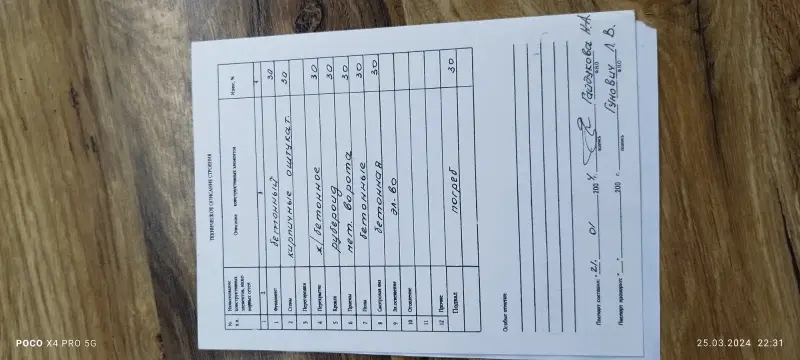 ТЕХНИЧЕСКОЕ ОПИСАНИЕ СТРОЕНИЯ
№ п.п. Наименование конструктивных элементов, инженерных сетей Описание конструктивных элементов Износ, %
1 2 3 4
1 Фундамент бетонный 30
2 Стены кирпичные оштукат. 30
3 Перегородки
4 Перекрытие ж/бетонное 30
5 Крыша рубероид 30
6 Проемы мет. ворота 30
7 Полы бетонные 30
8 Смотровая яма бетонная 30
9 Эл.освещение эл-во
10 Отопление
11
12 Прочее
Подвал погреб 30
Особые отметки
Паспорт составил: "21" 01 200 4. Гайдукова Н.А.
подпись ФИО
Паспорт проверил: " " 200 г. Гунович Л.В.
подпись ФИО
POCO X4 PRO 5G
25.03.2024 22:31